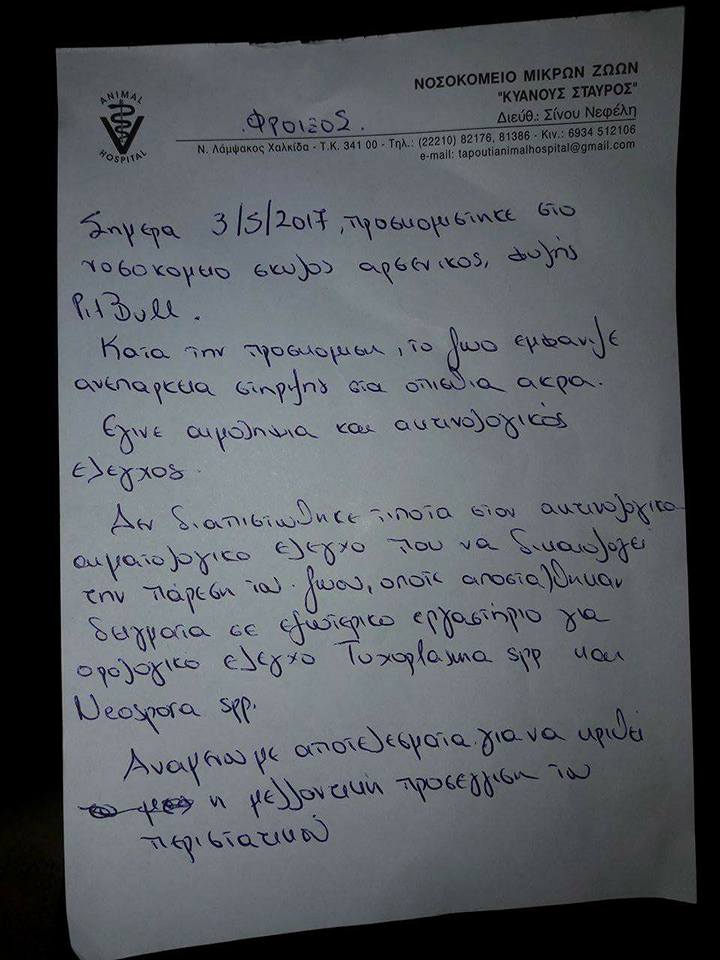 ANIMAL
HOSPITAL
ΝΟΣΟΚΟΜΕΙΟ ΜΙΚΡΩΝ ΖΩΩΝ
"ΚΥΑΝΟΥΣ ΣΤΑΥΡΟΣ"
Διεύθ.: Σίνου Νεφέλη
.ΦΡΟΙΞΟΣ.
Ν. Λάμψακος Χαλκίδα - Τ.Κ. 341 00 - Τηλ.: (22210) 82176, 81386 - Κιν.: 6934 512106
e-mail: tapoutianimalhospital@gmail.com
Σημερα 3/5/2017, προσκομιστηκε στο
νοσοκομειο σκυλος αρσενικος, φυλής
Pit Bull.
Κατα την προσκομιση, το ζωο εμφανιζε
ανεπαρκεια στηριξης στα οπισθια ακρα.
Εγινε αιμοληψια και ακτινολογικός
ελεγχος.
Δεν διαπιστωθηκε τιποτα στον ακτινολογικο-
αιματολογικο ελεγχο που να δικαιολογει
την πάρεση του ζωου, οποτε αποσταλθηκαν
δειγματα σε εξωτερικο εργαστήριο για
ορολογικο ελεγχο Toxoplasma spp και
Neospora spp.
Αναμενουμε αποτελεσματα για να κριθει
η μελλοντική προσεγγιση του
περιστατικού